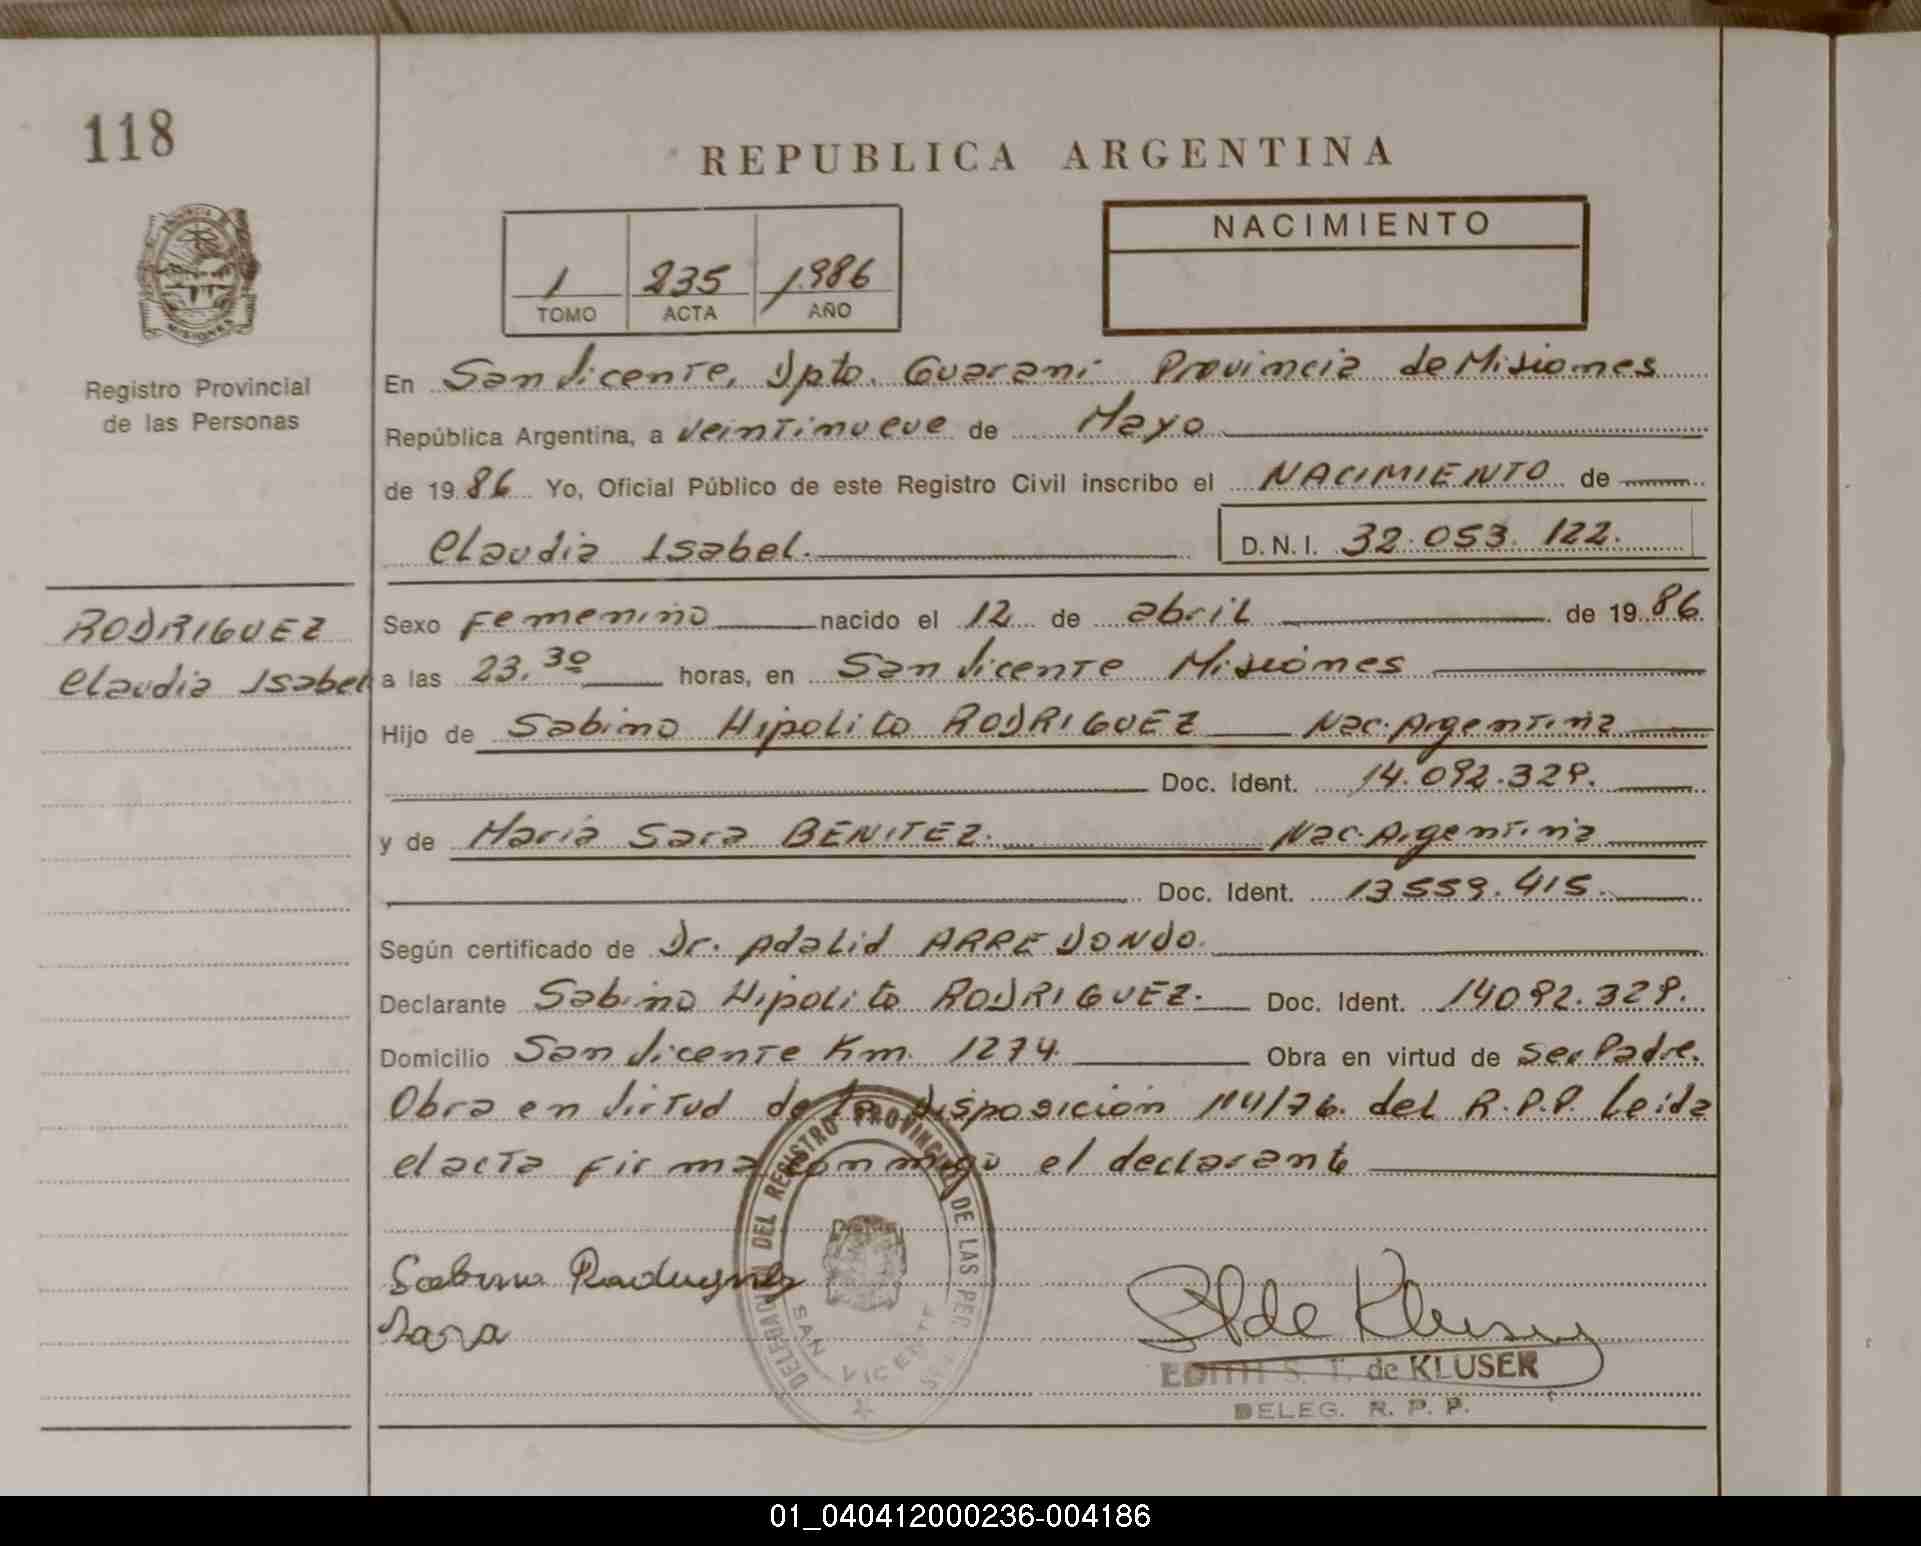 118
REPUBLICA ARGENTINA
NACIMIENTO
1 235 1.986
TOMO ACTA AÑO
MISIONES
Registro Provincial
de las Personas
En San Vicente, Dpto. Guarani Provincia de Misiones
República Argentina, a veintinueve de Mayo
de 1986 Yo, Oficial Público de este Registro Civil inscribo el NACIMIENTO de
Claudia Isabel. D.N.I. 32.053.122.
RODRIGUEZ
Claudia Isabel
Sexo Femenino nacido el 12 de abril de 1986.
a las 23,30 horas, en San Vicente Misiones
Hijo de Sabino Hipolito RODRIGUEZ Nac. Argentina
Doc. Ident. 14.092.329.
y de Maria Sara BENITEZ. Nac. Argentina
Doc. Ident. 13.559.415.
Según certificado de Dr. Adalid ARREDONDO.
Declarante Sabino Hipolito RODRIGUEZ. Doc. Ident. 14092.329.
Domicilio San Vicente Km. 1274. Obra en virtud de ser Padre.
Obra en virtud de la disposición 114/76. del R.P.P. Leida
el acta firma conmigo el declarante
DELEGACION DEL REGISTRO PROVINCIAL DE LAS PER.
SAN VICENTE
Sabino Rodriguez
Sara
Ede Kluser
EDITH S. T. de KLUSER
DELEG. R. P. P.
01_040412000236-004186